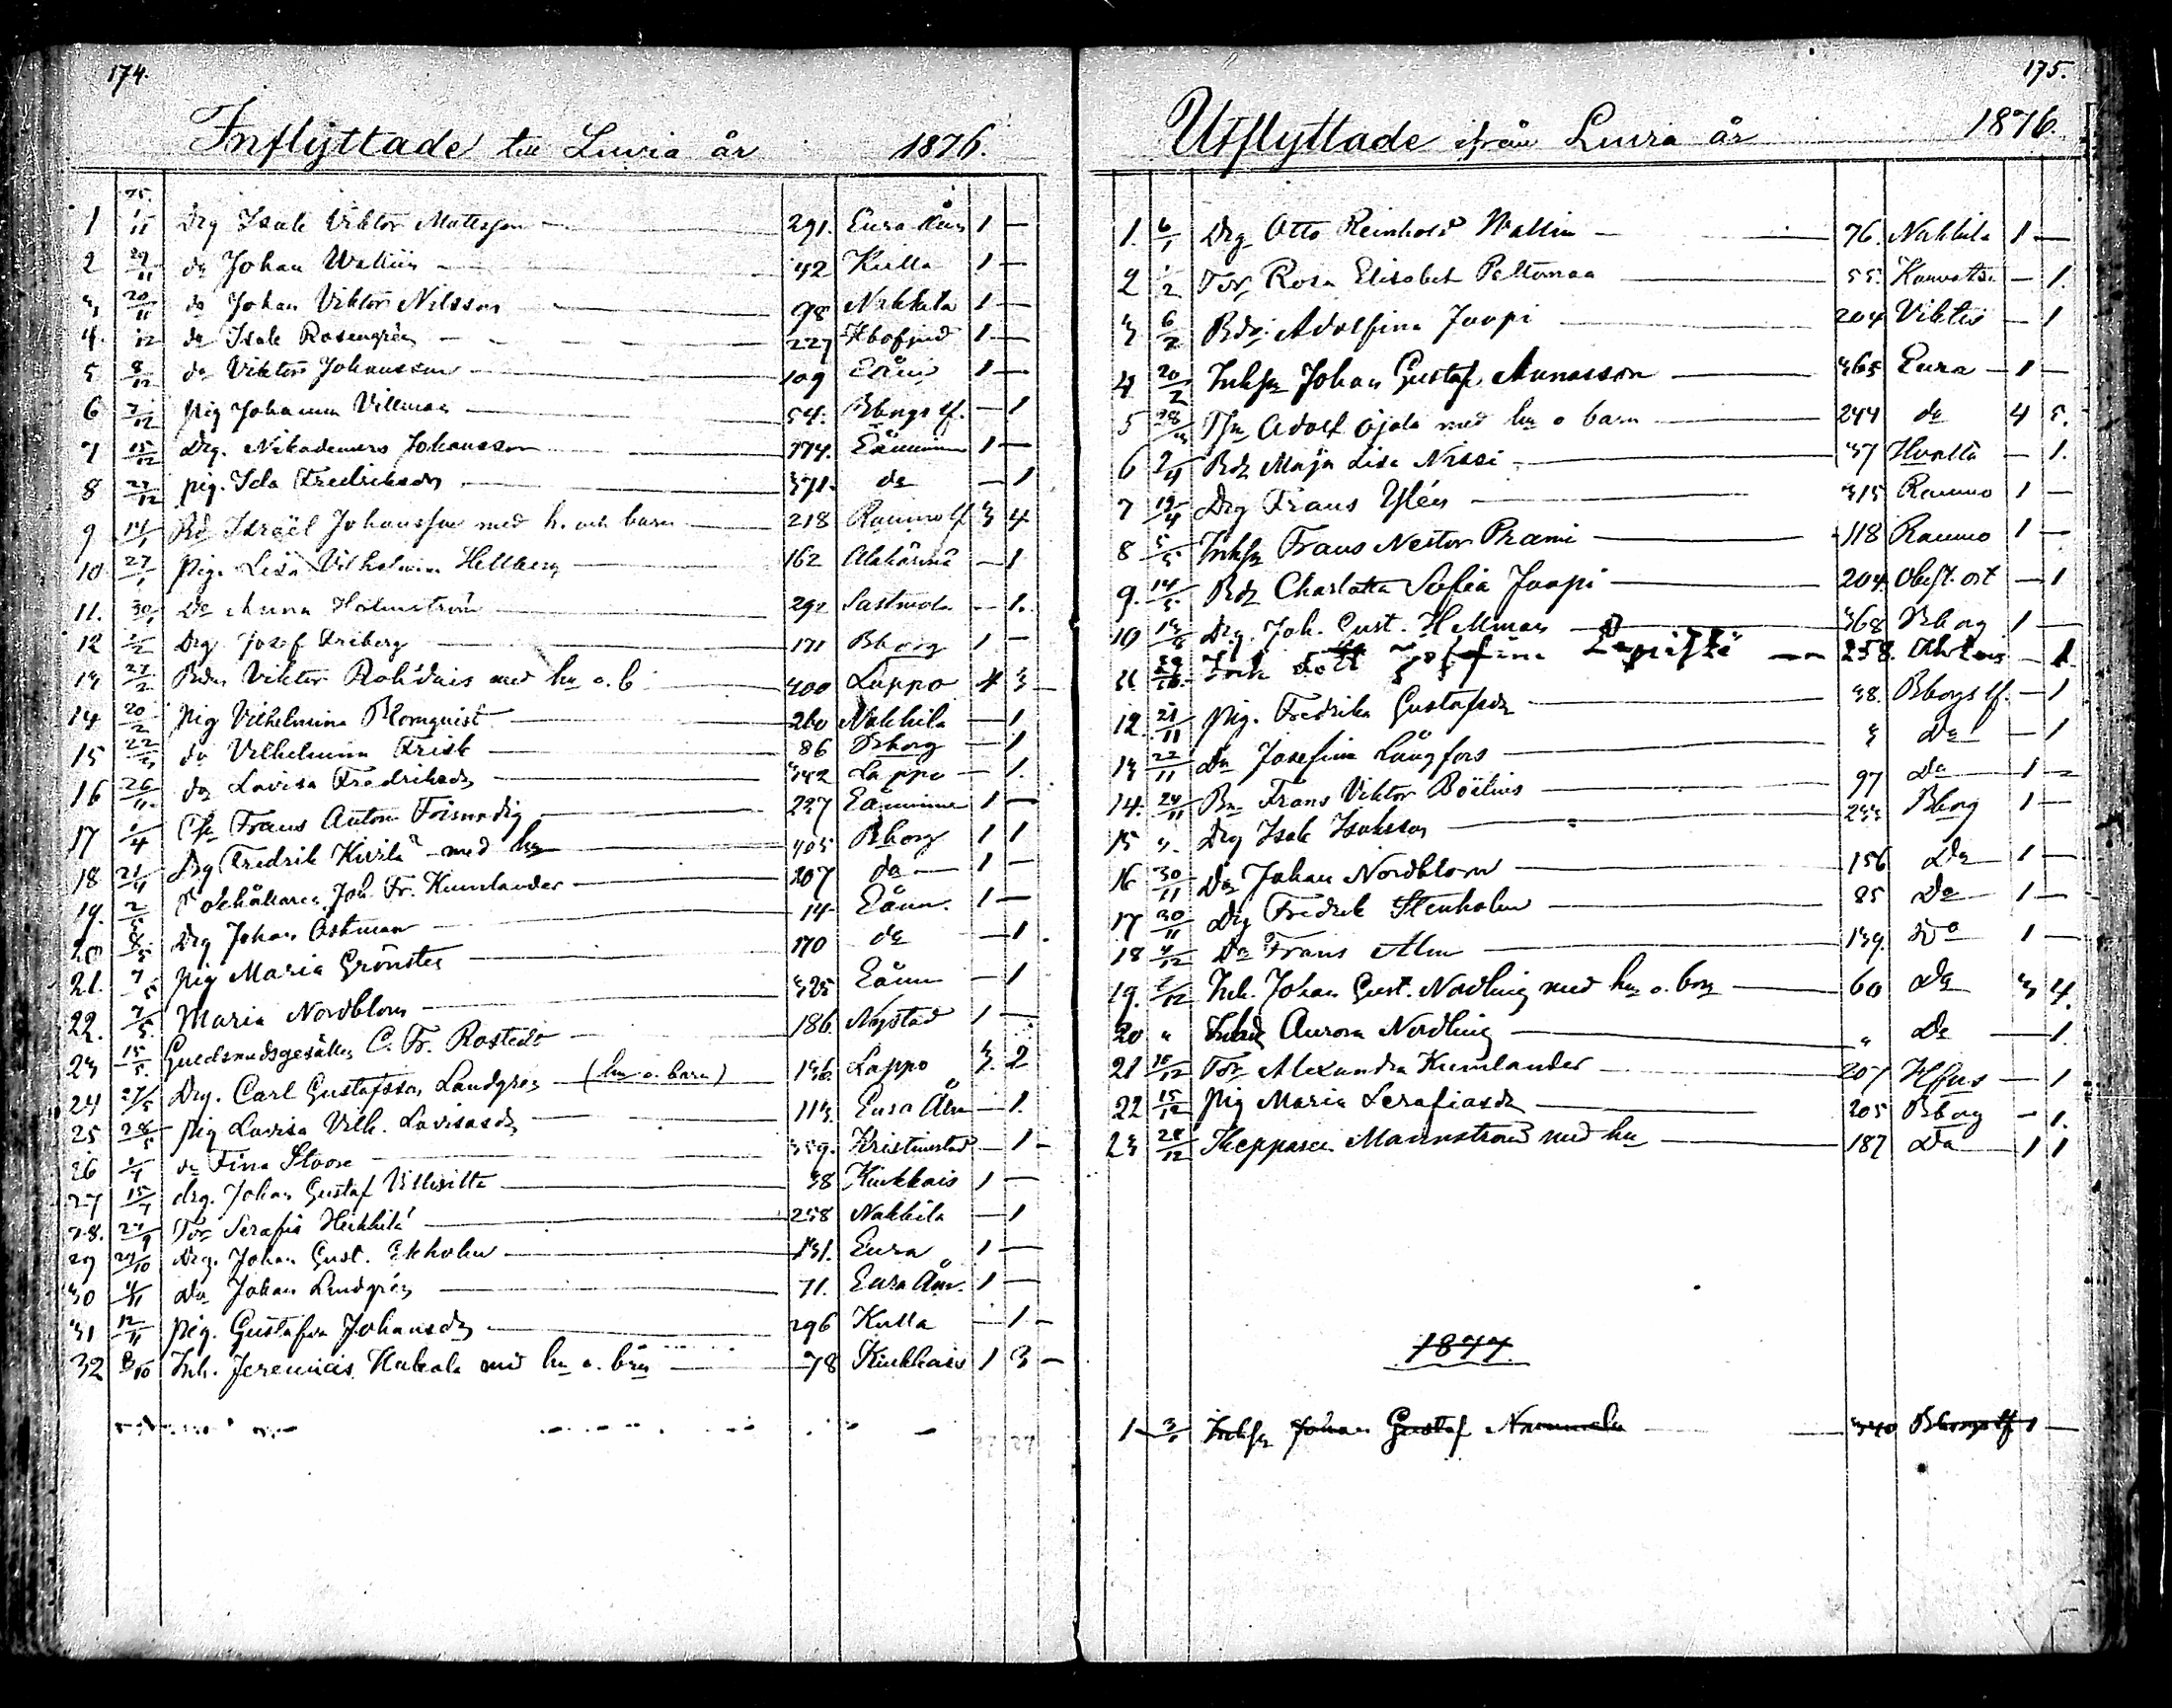 174.
Inflyttade till Luvia år 1876.
75.
1 1/11 Drg Isak Viktor Mattsson — 291. Eura Åm 1 —
2 29/11 do Johan Wallin — 42 Kulla 1 —
3 20/11 do Johan Viktor Nilsson 98 Nakkila 1 —
4. /12 do Isak Rosengrén — 227 1 —
5 8/12 do Viktor Johansson — 109 1 —
6 7/12 pig Johanna Villman — 54. Bborgs lf. — 1
7 15/12 Drg. Nikodemus Johansson 174. Eåminne 1 —
8 27/12 pig. Ida Fredriksdr — 371. do — 1
9 14/1 Bd Israël Johansson med h. och barn — 218 Raumo lf 3 4
10 27/1 Pig. Lisa Vilhelmina Hellberg — 162 — 1
11. 30/1 Do Anna Holmström — 292 Sastmola — 1.
12 1/2 Drg Josef Friberg — 171 Bborg 1 —
13 27/2 Bdn Viktor med hu o. b — 400 Lappo 4 3 —
14 20/2 Pig Vilhelmina Blomquist — 260 Nakkila — 1
15 22/3 do Vilhelmina Frisk — 86 Bborg — 1
16 26/ do Lovisa Fredriksdr — 342 Lappo — 1.
17 1/4 Frans Anton — 227 Eåminne 1 —
18 21/4 Drg Fredrik Kivilä med hu — 405 Bborg 1 1
19. 2/5 Joh. Fr. Kumlander — 207 do 1 —
20 8/5 Drg Johan Östman — 14 Eåm. 1 —
21. 7/5 pig Maria Grönsten — 170 do — 1.
22. 7/5 Maria Nordblom — 325 Eåm — 1
23 15/5. Guldsmedsgesällen C. Fr. Rostedt — 186. Nystad 1 —
24 27/5 Drg. Carl Gustafsson Landgren — (hu o. barn) — 196. Lappo 3. 2
25 28/5 pig Lovisa Vilh. Lovisasdr 113. Eura Åm — 1.
26 do Fina Stoore — 359. Kristinestad — 1 —
27 15/7 drg. Johan Gustaf — 38 Kiukkais 1 —
28. 24/9 Serafia Heikkilä — 258 Nakkila — 1
29 29/10 Drg. Johan Gust. Ekholm — 131. Eura 1 —
30 4/11 Do Johan Lindgrén — 71. Eura Åm. 1 —
31 12/11 pig. Gustafva Johansdr — 296 Kulla — 1 —
32 8/10 Inh. Jeremias Hakala med hu o. brn — 78 Kiukkais 1 3 —
175.
Utflyttade ifrån Luvia år 1876.
1. 6/1 Drg Otto Reinhold Wallin — 76. Nakkila 1 —
2 1/2 Rosa Elisabet Peltomaa — 55. — 1.
3 6/2 Bdr Adolfina Juopi — 204 — 1
4 20/2 Inhsn Johan Gustaf Aunasson — 365 Eura — 1 —
5 28/3 Adolf Ojala med hu o barn — 244 do 4 5.
6 2/4 Bdr Maja Lisa Nissi — 37 — 1.
7 19/4 Drg Frans Ylén — 315 Raumo 1 —
8 5/5 Inhsn Frans Nestor Prami — 118 Raumo 1 —
9. 14/5 Bdr Charlotta Sofia Juopi — 204. — 1
10 Drg. Joh. Gust. Hellman — 368 Bborg 1 —
11. Josefina Lepistö — 258. — 1
12 21/11 Pig. Fredrika Gustafsdr — 38. Bborgs lf. — 1
13 22/11 Do Josefina Långfors — 3 Do — 1
14. 24/11 Frans Viktor Böëlius — 97 Do 1 —
15 ". Drg Isak Isaksson — 233 Bborg 1 —
16 30/11 Do Johan Nordblom — 156 Do 1 —
17 30/11 Drg Fredrik Stenholm — 85 Do 1 —
18 4/12 Do Frans Alm — 139. Do 1 —
19. /12 Inh. Johan Gust. Nordling med hu o. brn — 60 Do 3 4.
20 " Aurora Nordling — " Do — 1.
21 10/12 Alexandra Kumlander — 207 Hfors — 1
22 15/12 Pig Maria Serafiasdr — 205 Bborg — 1.
23 28/12 Skepparen Mannström med hu — 187 Do 1 1
1877.
1 3/1 Inhsn Johan Gustaf Nummela — 340 Bborgs lf 1 —